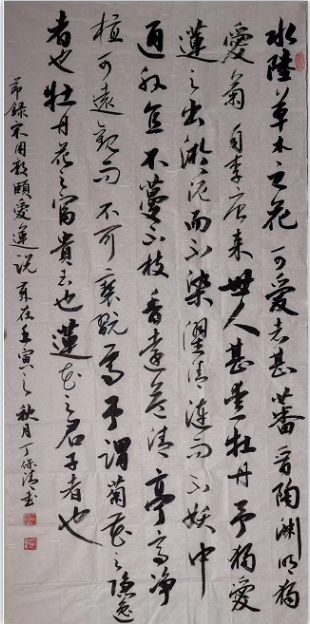 水陸草木之花可愛者甚蕃晋陶渊明独
愛菊自李唐来世人甚愛牡丹予独愛
蓮之出淤泥而不染濯清漣而不妖中
通外直不蔓不枝香遠益清亭亭净
植可遠觀而不可褻玩焉予謂菊花之隐逸
者也牡丹花之富貴者也蓮花之君子者也
节録宋周敦頤愛蓮説岁在壬寅之秋月丁保清书